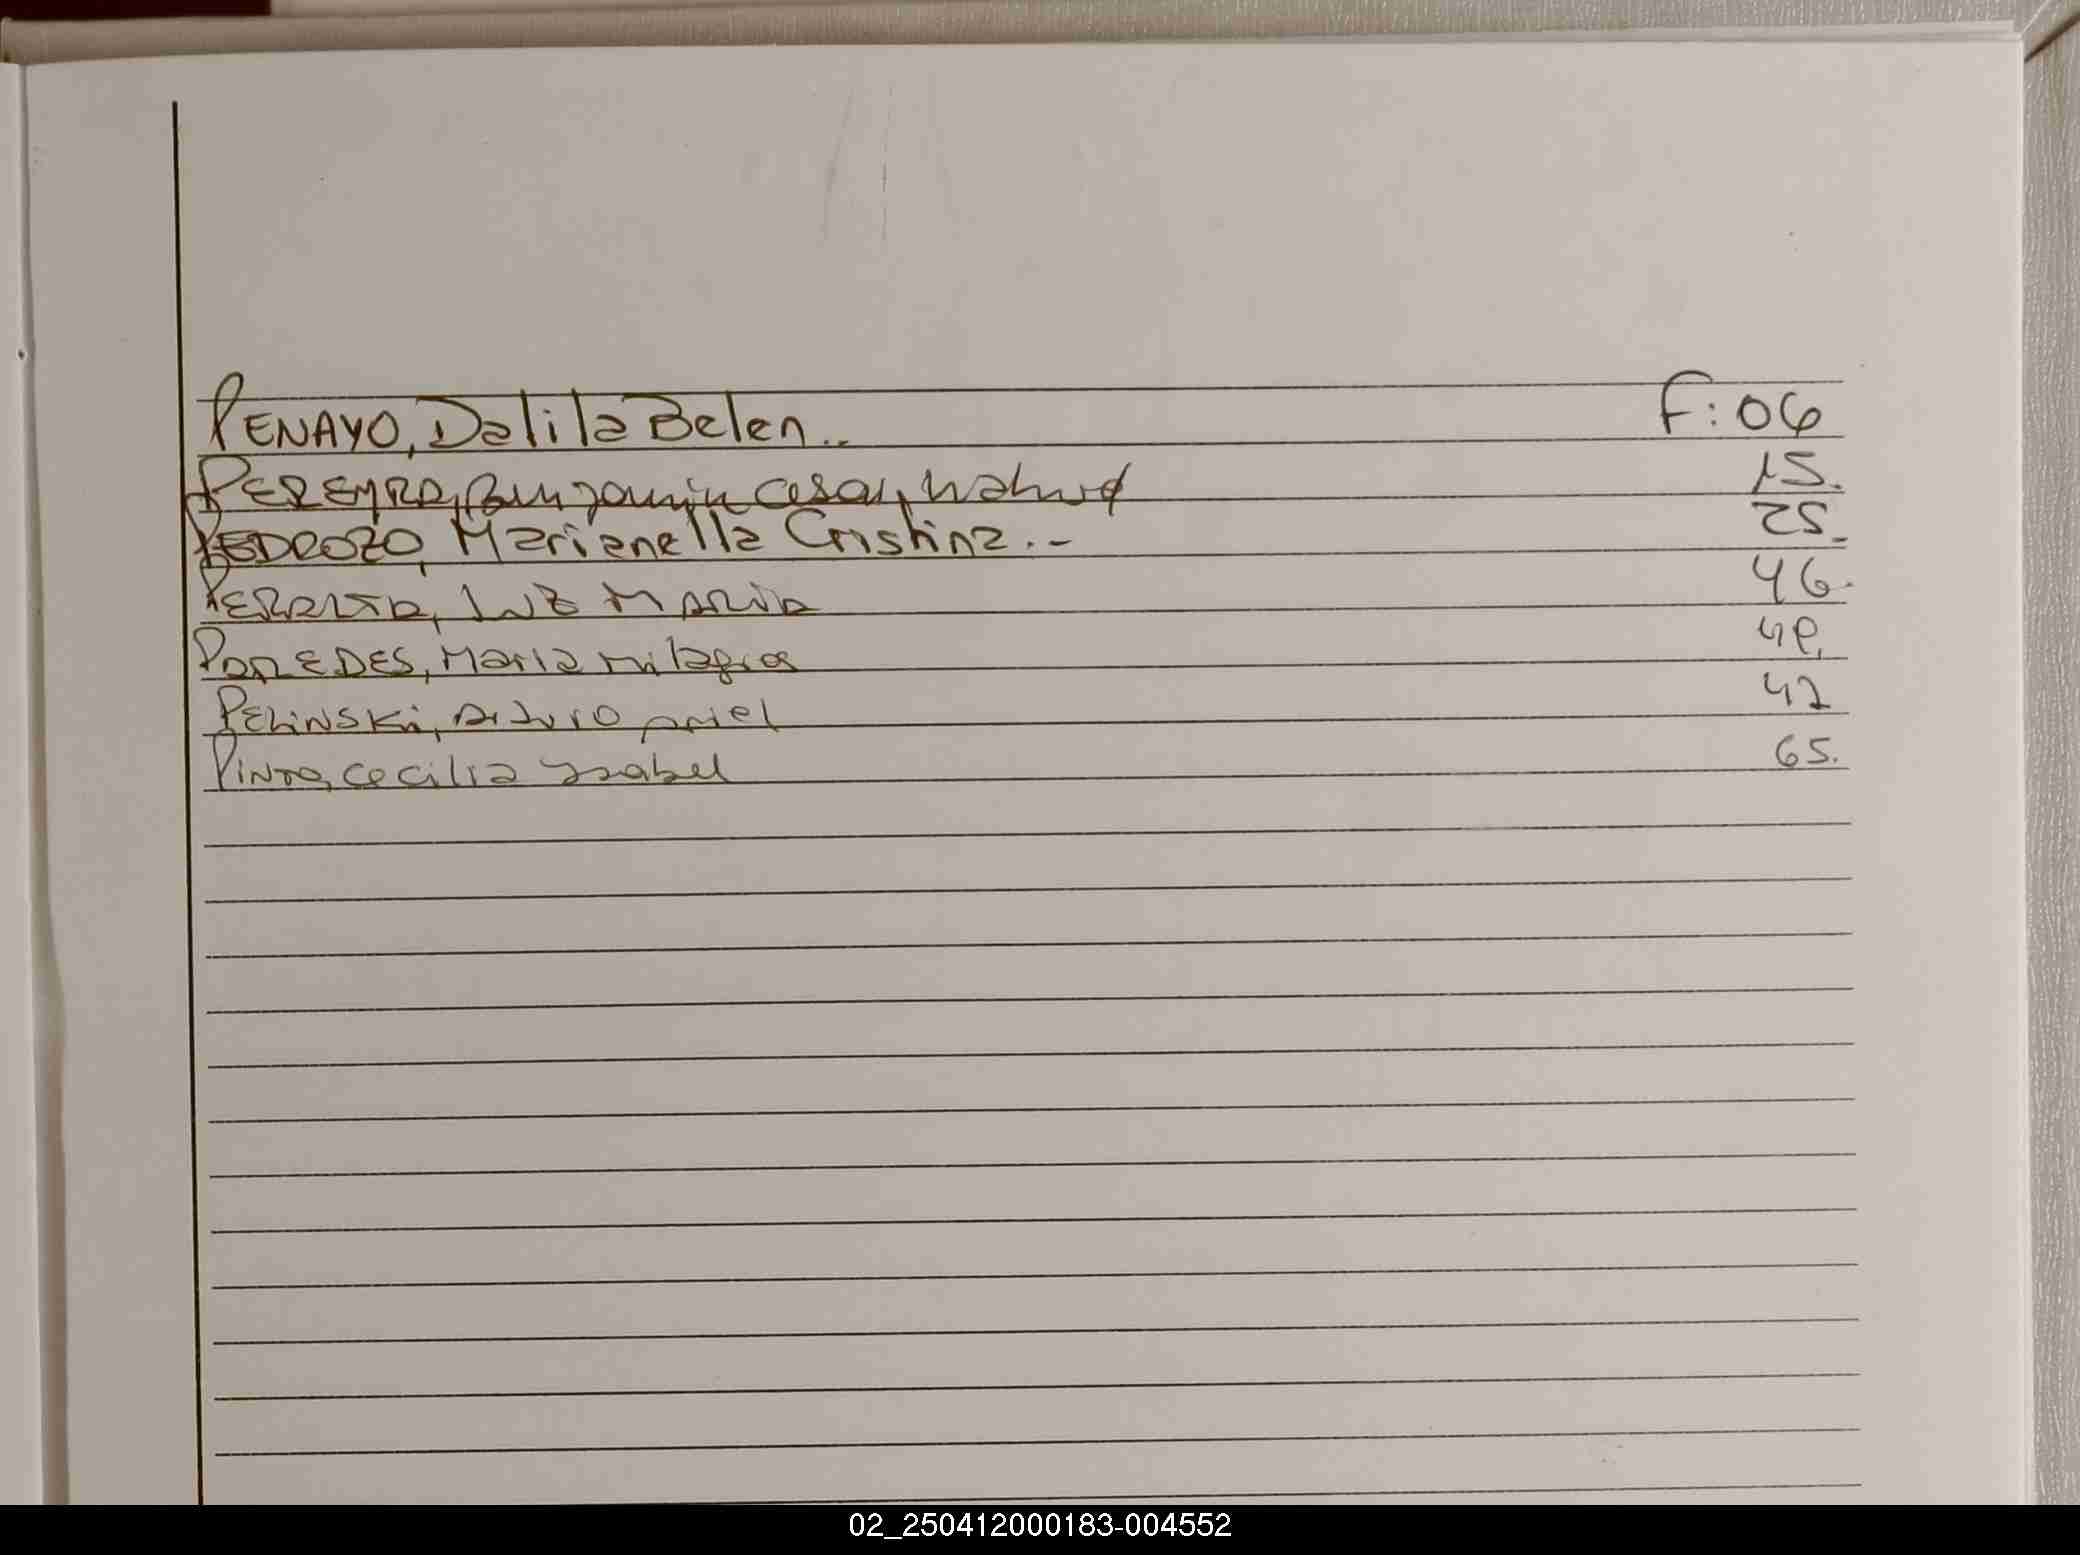 PENAYO, Dalila Belen.. F: 06
PEREYRA, Benjamin Cesar, Nahuel 15.
PEDROZO, Marianella Cristina.- 25.
PERALTA, LUZ MARIA 46.
PAREDES, Maria Milagros
PELINSKI, Arturo Ariel 47
PINTO, Cecilia Ysabel 65.
02_250412000183-004552